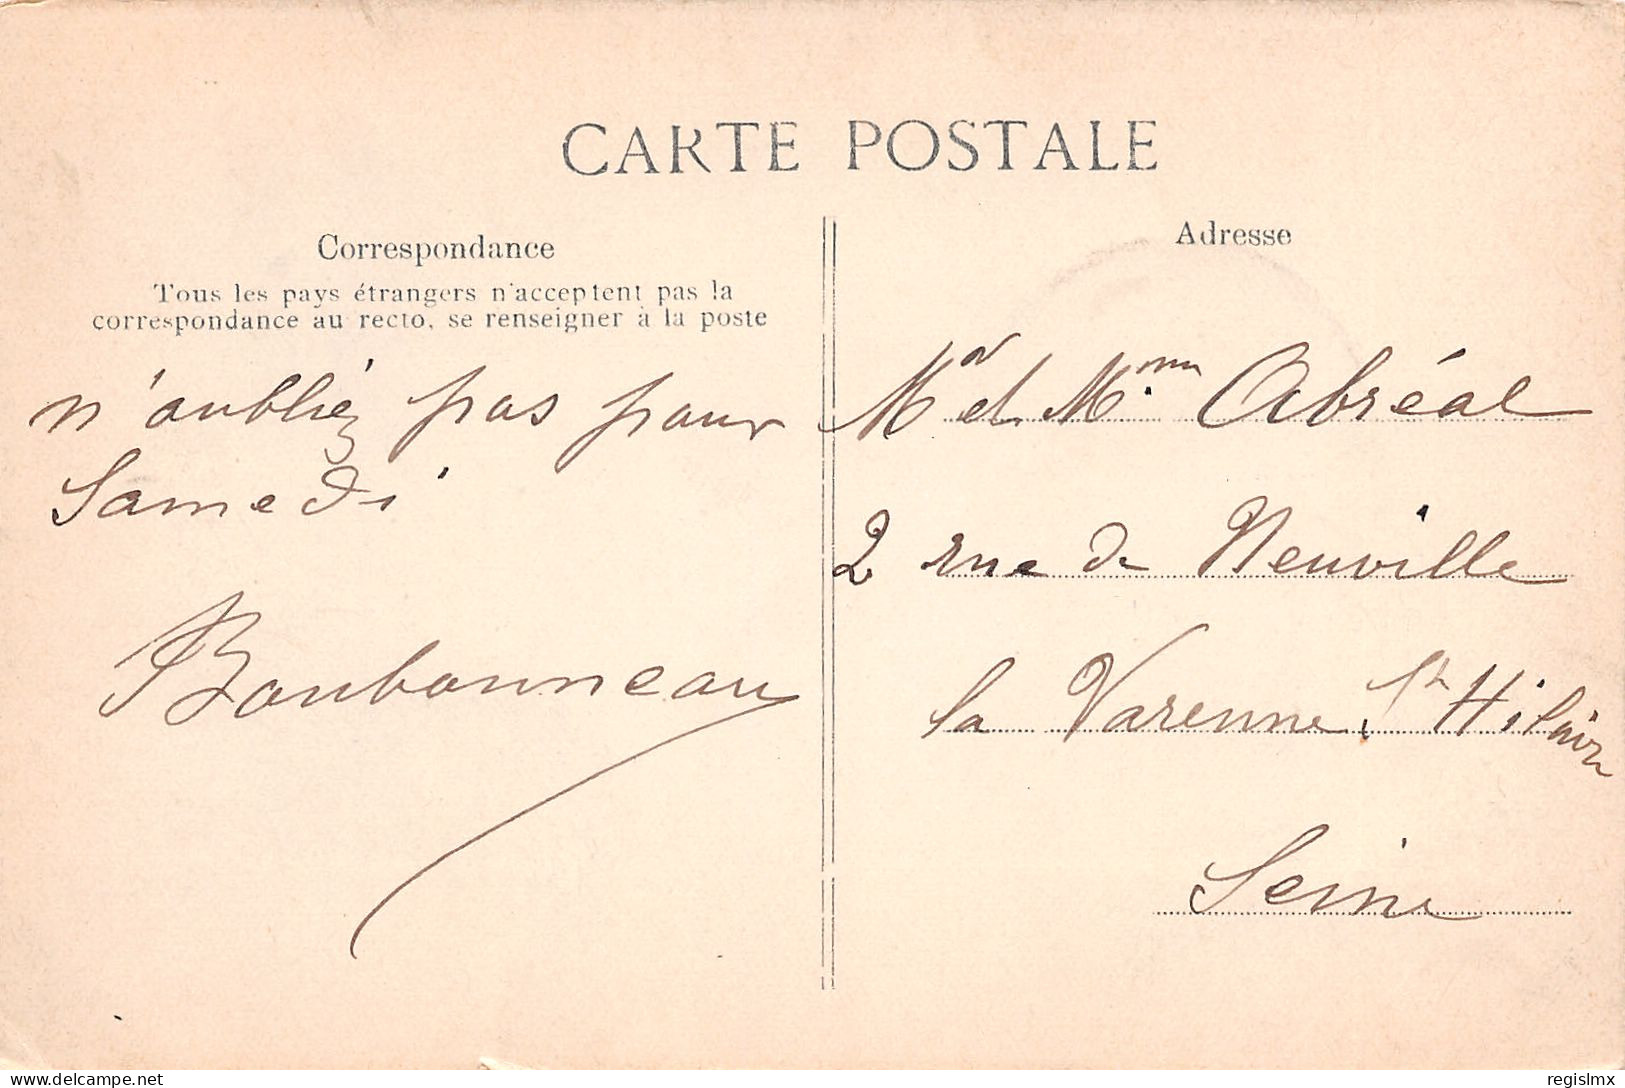 CARTE POSTALE
Correspondance
Tous les pays étrangers n'acceptent pas la
correspondance au recto, se renseigner à la poste
n'oubliéz pas pour
Samedi
Boubonneau
Adresse
Mr et Mme Abréal
2 rue de Neuville
la Varenne St Hilaire
Seine
delcampe.net
regislmx